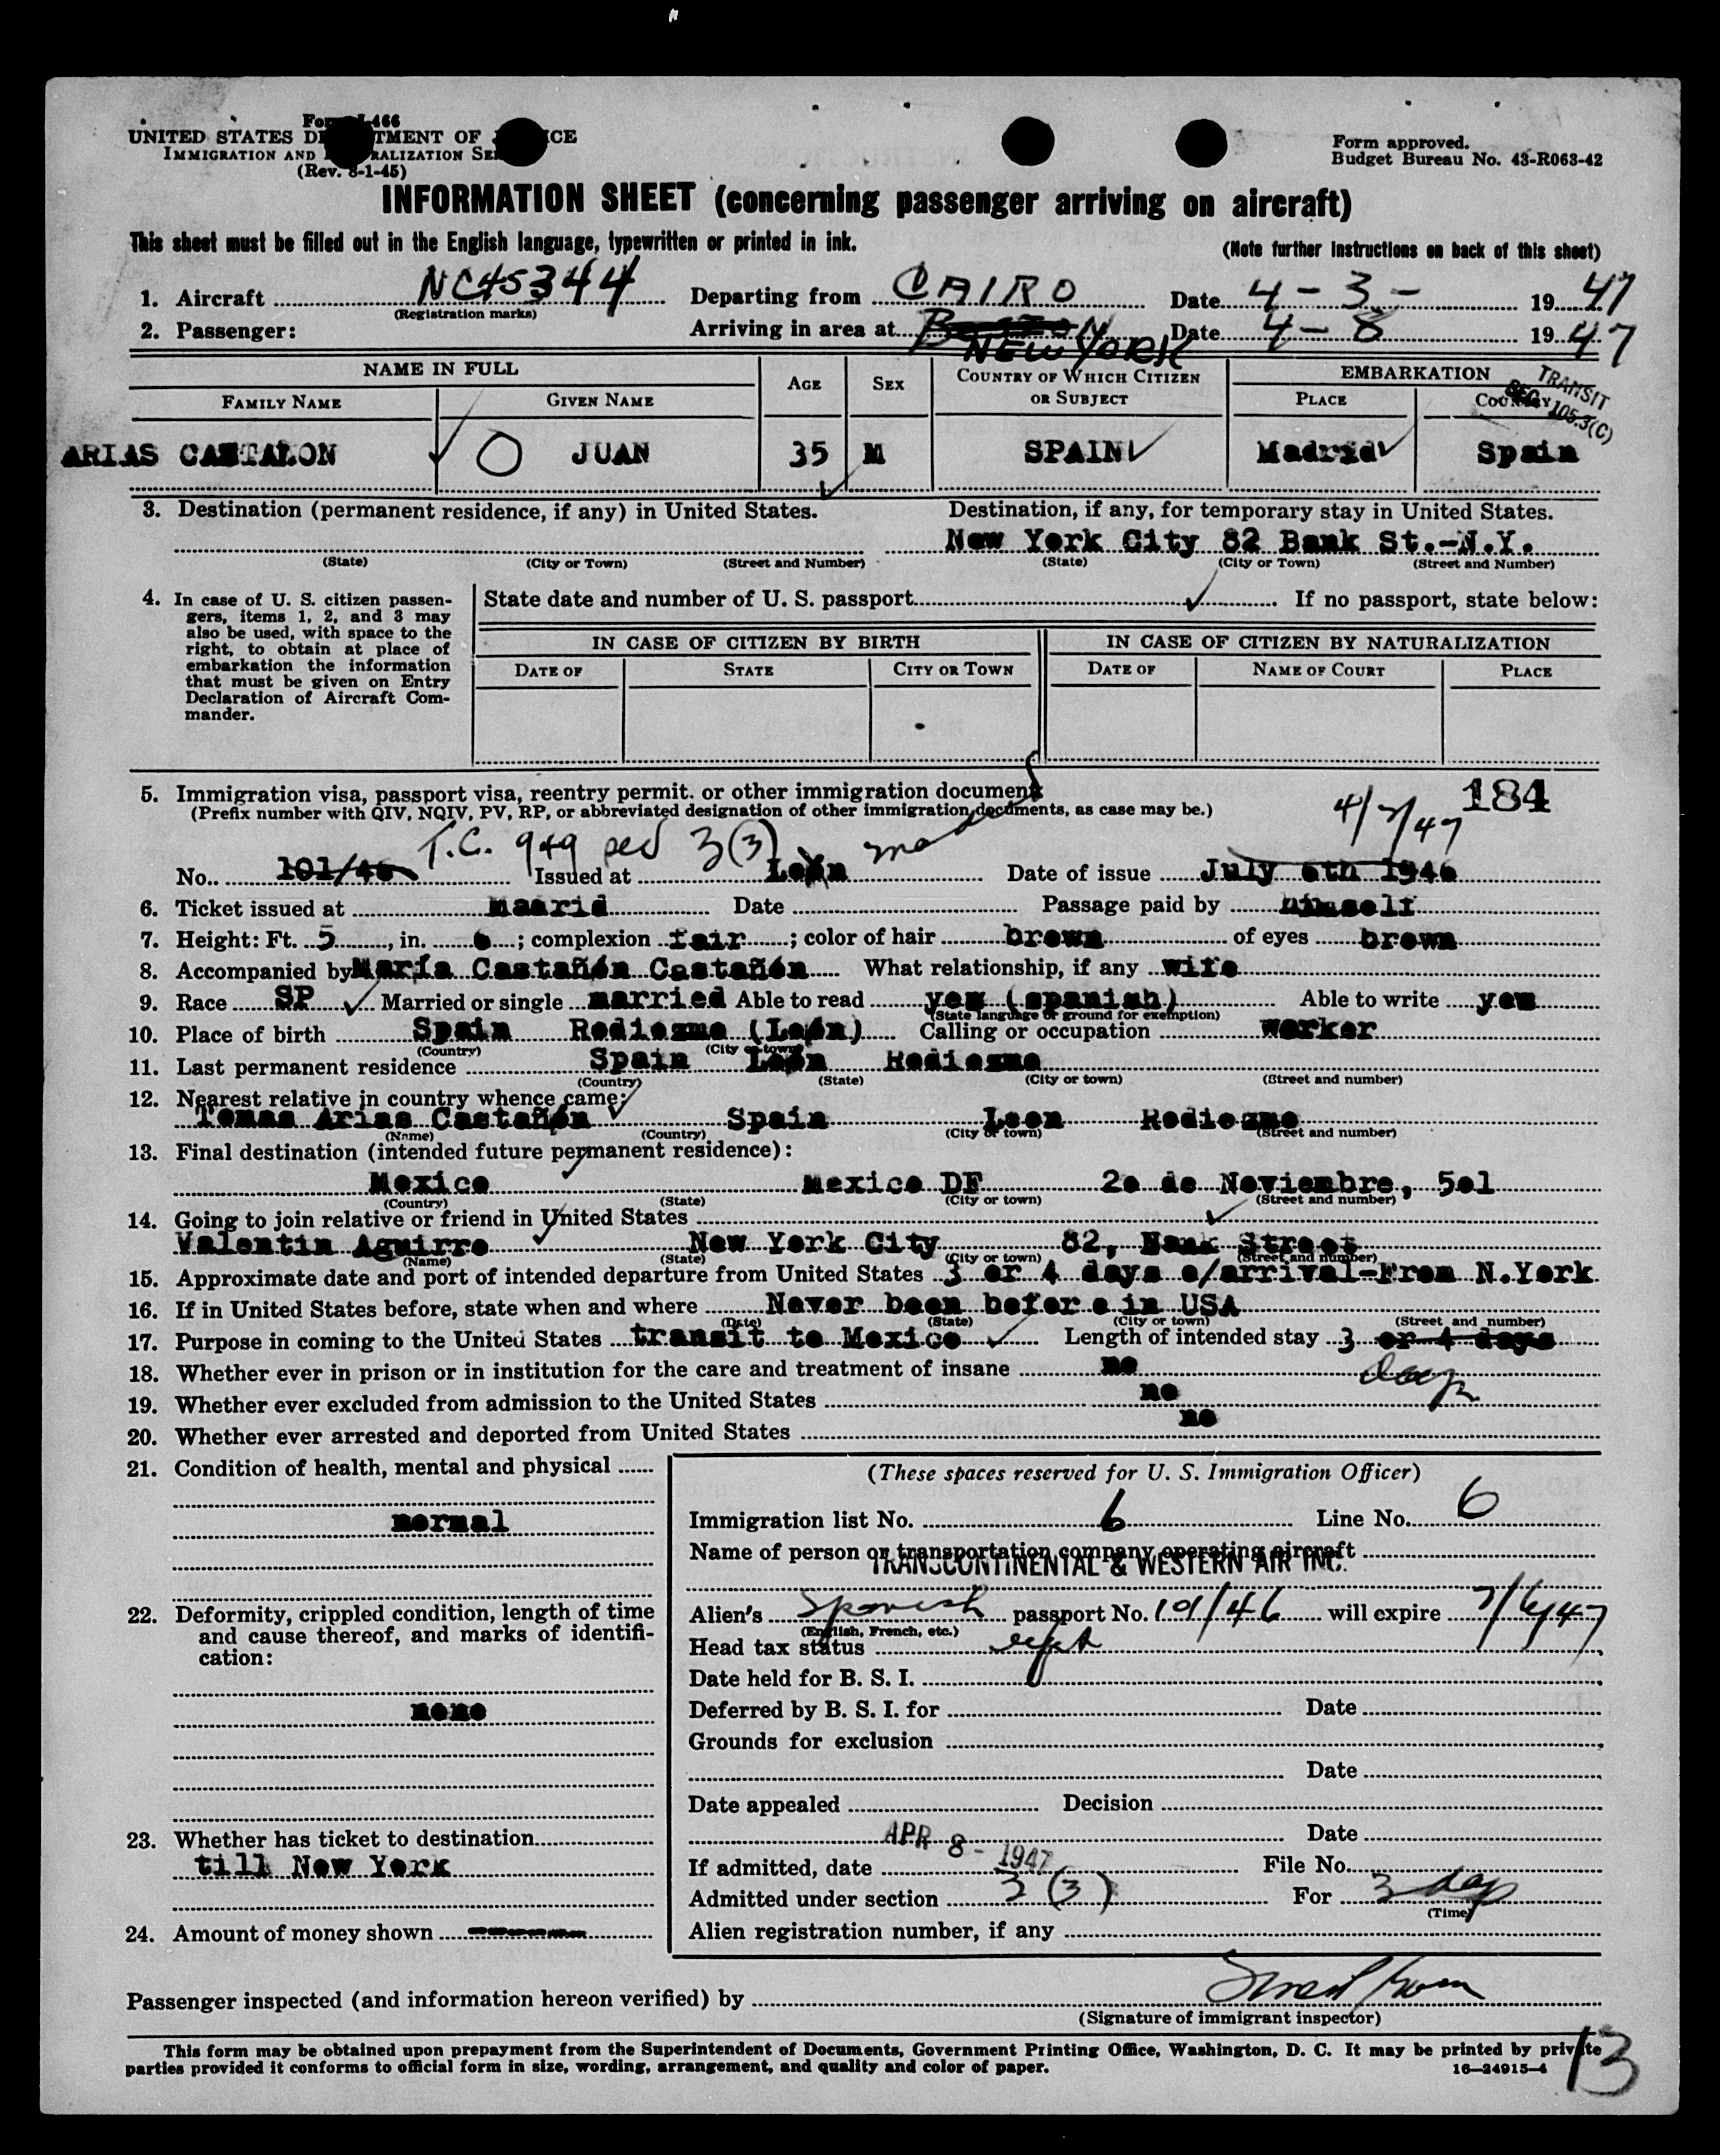 Form I-466
UNITED STATES DEPARTMENT OF JUSTICE
IMMIGRATION AND NATURALIZATION SERVICE
(Rev. 8-1-45)
Form approved.
Budget Bureau No. 43-R063-42
INFORMATION SHEET (concerning passenger arriving on aircraft)
This sheet must be filled out in the English language, typewritten or printed in ink.
(Note further instructions on back of this sheet)
1. Aircraft NC45344 Departing from CAIRO Date 4-3- 1947
(Registration marks)
2. Passenger: Arriving in area at Boston Date 4-8 1947
NEW YORK
NAME IN FULL AGE SEX COUNTRY OF WHICH CITIZEN OR SUBJECT EMBARKATION
FAMILY NAME GIVEN NAME PLACE COUNTRY
TRANSIT
SEC. 105.3(C)
ARIAS CASTAÑON O JUAN 35 M SPAIN Madrid Spain
3. Destination (permanent residence, if any) in United States. Destination, if any, for temporary stay in United States.
New York City 82 Bank St.-N.Y.
(State) (City or Town) (Street and Number) (State) (City or Town) (Street and Number)
4. In case of U. S. citizen passengers, items 1, 2, and 3 may also be used, with space to the right, to obtain at place of embarkation the information that must be given on Entry Declaration of Aircraft Commander.
State date and number of U. S. passport If no passport, state below:
IN CASE OF CITIZEN BY BIRTH IN CASE OF CITIZEN BY NATURALIZATION
DATE OF STATE CITY OR TOWN DATE OF NAME OF COURT PLACE
5. Immigration visa, passport visa, reentry permit. or other immigration document
184
(Prefix number with QIV, NQIV, PV, RP, or abbreviated designation of other immigration documents, as case may be.)
T.C. 949 3(3) 4/7/47
No. 101/46 Issued at León Date of issue July 6th 1946
6. Ticket issued at Madrid Date Passage paid by himself
7. Height: Ft. 5, in. 6; complexion fair; color of hair brown of eyes brown
8. Accompanied by María Castañón Castañón What relationship, if any wife
9. Race SP Married or single married Able to read yes (spanish) Able to write yes
(State language or ground for exemption)
10. Place of birth Spain Rediezmo (León) Calling or occupation worker
(Country) (City or town)
11. Last permanent residence Spain León Rediezmo
(Country) (State) (City or town) (Street and number)
12. Nearest relative in country whence came:
Tomas Arias Castañón Spain Leon Rediezmo
(Name) (Country) (City or town) (Street and number)
13. Final destination (intended future permanent residence):
Mexico Mexico DF 20 de Noviembre, 501
(Country) (State) (City or town) (Street and number)
14. Going to join relative or friend in United States
Valentin Aguirre New York City 82, Bank Street
(Name) (State) (City or town) (Street and number)
15. Approximate date and port of intended departure from United States 3 or 4 days o/arrival-From N.York
16. If in United States before, state when and where Never been before in USA
(Date) (State) (City or town) (Street and number)
17. Purpose in coming to the United States transit to Mexico Length of intended stay 3 or 4 days
days
18. Whether ever in prison or in institution for the care and treatment of insane no
19. Whether ever excluded from admission to the United States no
20. Whether ever arrested and deported from United States no
21. Condition of health, mental and physical
normal
22. Deformity, crippled condition, length of time and cause thereof, and marks of identification:
none
23. Whether has ticket to destination
till New York
24. Amount of money shown
(These spaces reserved for U. S. Immigration Officer)
Immigration list No. 6 Line No. 6
Name of person or transportation company operating aircraft
TRANSCONTINENTAL & WESTERN AIR INC.
Alien's Spanish passport No. 101/46 will expire 7/6/47
(English, French, etc.)
Head tax status
Date held for B. S. I.
Deferred by B. S. I. for Date
Grounds for exclusion
Date
Date appealed Decision
Date
If admitted, date APR 8 - 1947 File No.
Admitted under section 3 (3) For 3 days
(Time)
Alien registration number, if any
Passenger inspected (and information hereon verified) by
(Signature of immigrant inspector)
This form may be obtained upon prepayment from the Superintendent of Documents, Government Printing Office, Washington, D. C. It may be printed by private
parties provided it conforms to official form in size, wording, arrangement, and quality and color of paper. 16—24915-4
13